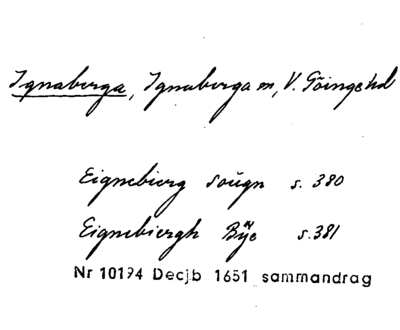 Ignaberga, Ignaberga sn, V. Göinge hd
Eignebierg soügn s. 380
Eignebiergh Bÿe s. 381
Nr 10194 Decj.b 1651 sammandrag